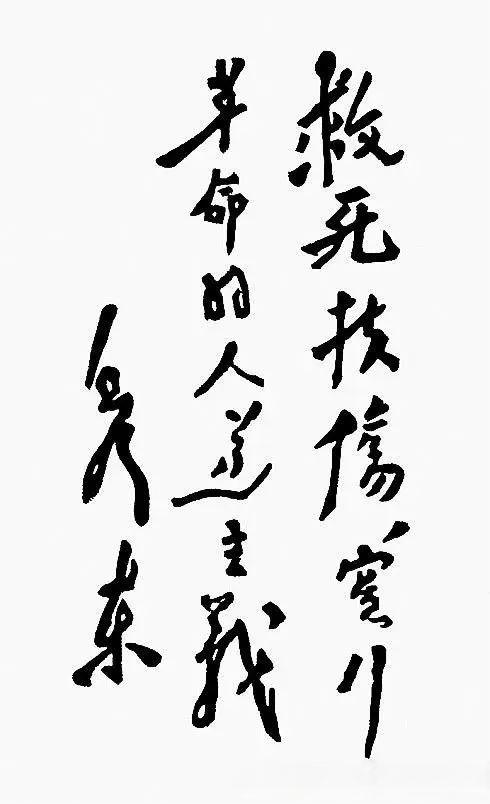 救死扶傷寔行
革命的人道主義
毛泽东